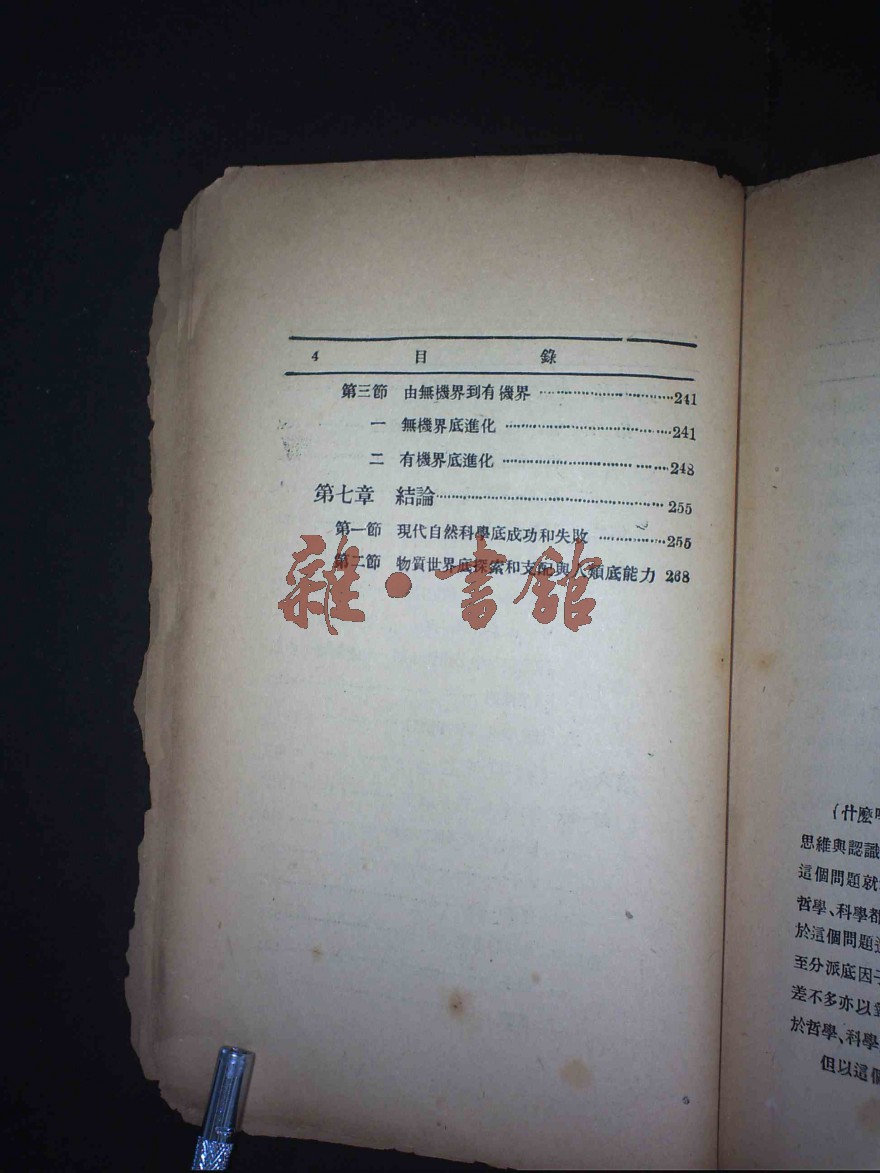 4 目錄
第三節 由無機界到有機界 ………………………241
一 無機界底進化 ………………………241
二 有機界底進化 ………………………248
第七章 結論………………………255
第一節 現代自然科學底成功和失敗 …………255
第二節 物質世界底探索和支配與人類底能力 268
雜·書館
(什麼
思維與認識
這個問題就
哲學、科學都
於這個問題
至分派底因子
差不多亦以
於哲學、科學
但以這個